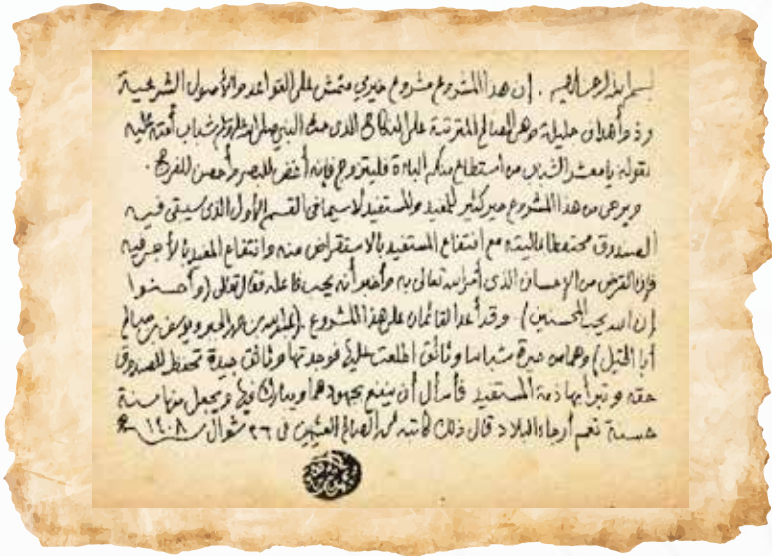 بسم الله الرحمن الرحيم . إن هذا المشروع مشروع خيري متمش على القواعد والأصول الشرعية
وذو أهداف جليلة وهي المصالح المترتبة على النكاح الذي حث النبي صلى الله عليه وسلم شباب أمته عليه
بقوله يا معشر الشباب من استطاع منكم الباءة فليتزوج فإنه أغض للبصر وأحصن للفرج .
ويرجى من هذا المشروع خير كثير للمفيد والمستفيد لاسيما في القسم الأول الذي سيبقى فيه
الصندوق محتفظا بماليته مع انتفاع المستفيد بالاستقراض منه وانتفاع المفيد بالأجر فيه
فإن القرض من الإحسان الذي أمر الله تعالى به وأخبر أنه يحب فاعله فقال تعالى (وأحسنوا
إن الله يحب المحسنين) . وقد أعد القائمان على هذا المشروع (عبدالله بن يوسف بن صالح
أبا الخيل) وهما من خيرة شبابنا وثائق اطلعت عليها فوجدتها وثائق جيدة تحفظ للصندوق
حقه وتبرأ بها ذمة المستفيد فأسأل الله أن ينفع بجهودهما ويبارك فيها ويجعل منها سنة
حسنة تعم أرجاء البلاد قال ذلك كاتبه محمد الصالح العثيمين في ٢٦ شوال ١٤٠٨ هـ